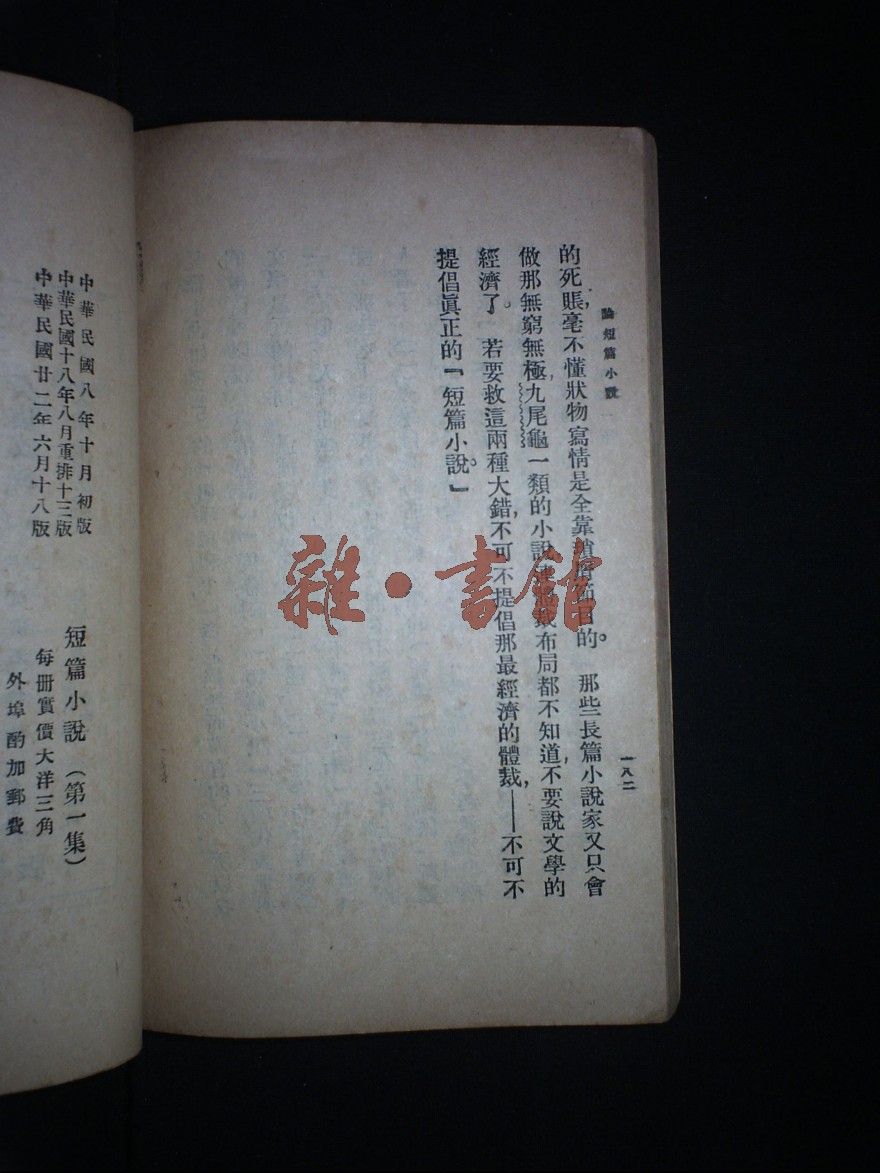 論短篇小說
一八二
的死賬，毫不懂狀物寫情是全靠瑣屑節目的。那些長篇小說家又只會
做那無窮無極九尾龜一類的小說，連體裁布局都不知道，不要說文學的
經濟了。若要救這兩種大錯，不可不提倡那最經濟的體裁，——不可不
提倡眞正的『短篇小說。』
中華民國八年十月初版
中華民國十八年八月重排十三版
中華民國廿二年六月十八版
短篇小說（第一集）
每册實價大洋三角
外埠酌加郵費
雜·書館